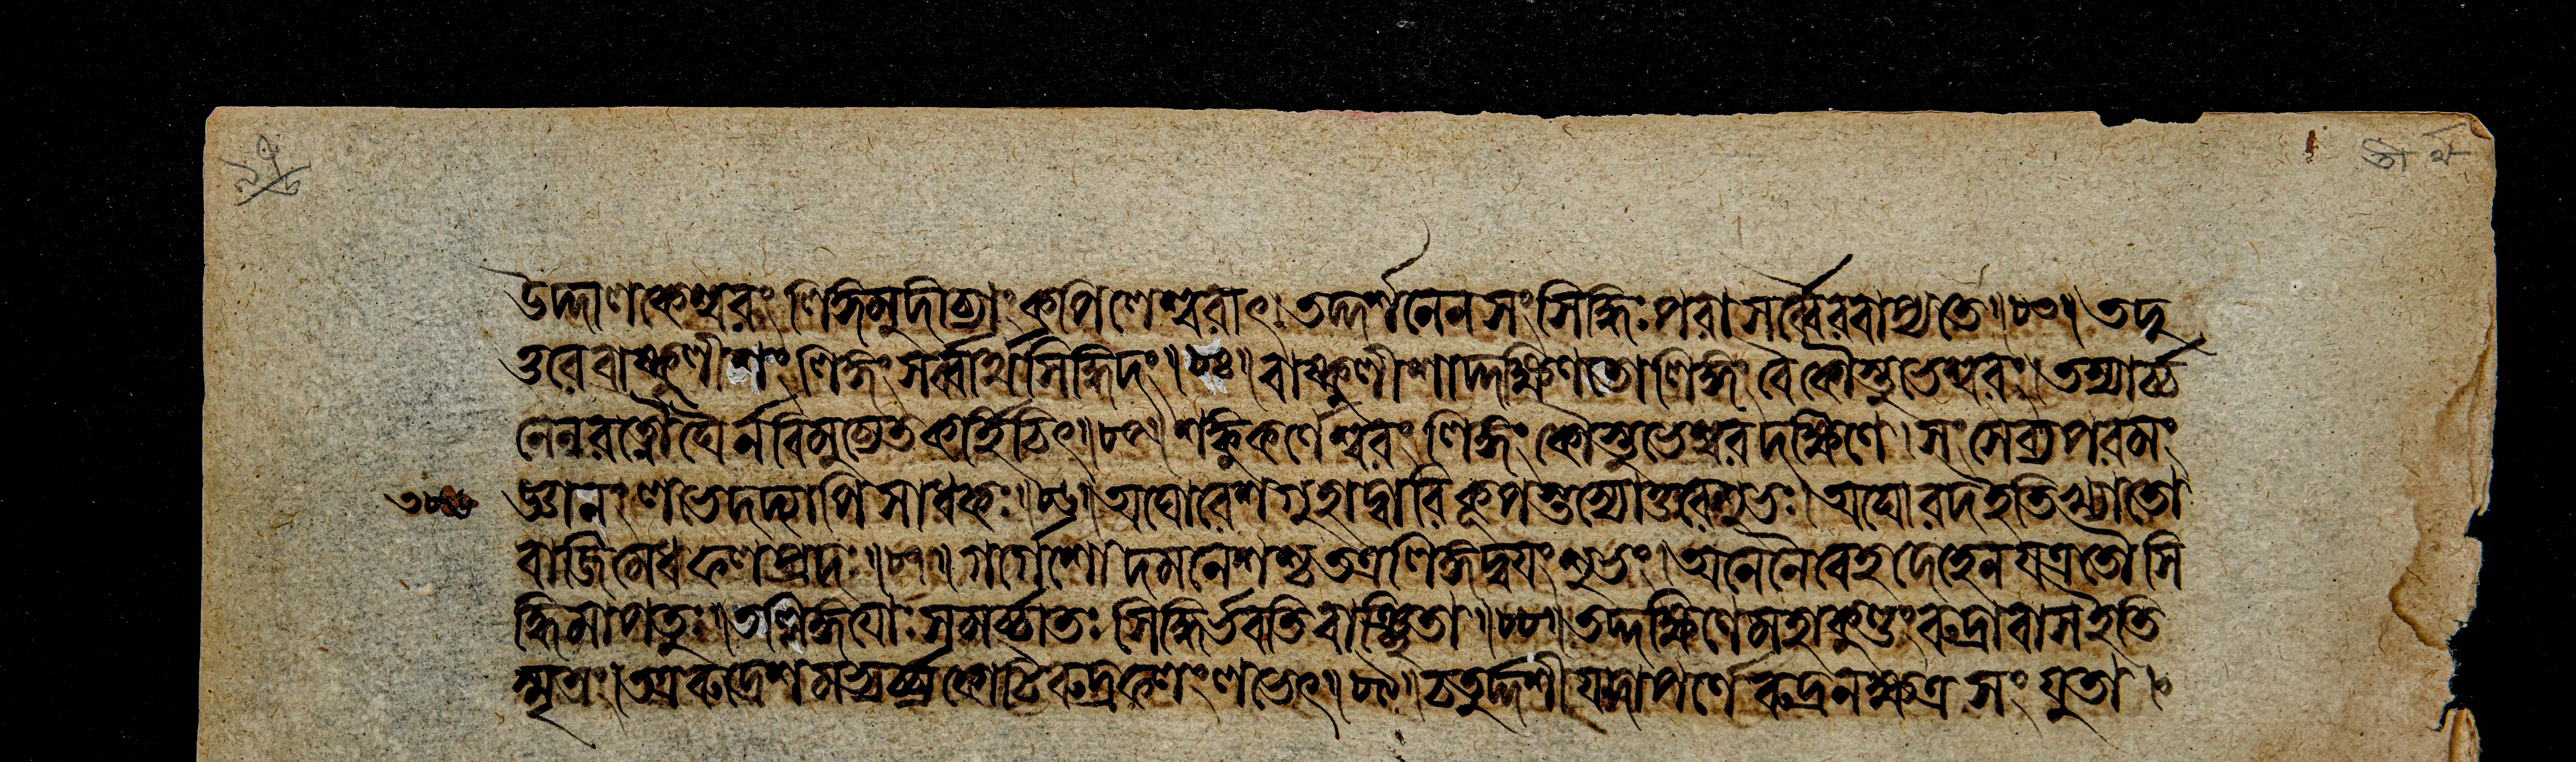 উদ্দালকেশ্বরং লিঙ্গমুদীচ্যাং কপিলেশ্বরাৎ। তদ্দর্শনেন সংসিদ্ধিঃ পরা সর্ব্বৈরবাপ্যতে॥৮৩॥ তদু
ত্তরে বাষ্কুলীশং লিঙ্গং সর্ব্বার্থসিদ্ধিদং॥৮৪॥ বাষ্কুলীশাদ্দক্ষিণতো লিঙ্গং বৈ কৌস্তুভেশ্বরং। তস্যার্চ্চ
নেন রত্নৌঘৈর্ন বিমুচ্যেত কর্হিচিৎ॥৮৫॥ শঙ্কুকর্ণেশ্বরং লিঙ্গং কৌস্তুভেশ্বরদক্ষিণে। সংসেব্য পরমং
জ্ঞানং লভেদদ্যাপি সাধকঃ॥৮৬॥ অঘোরেশ গুহাদ্বারি কূপস্তস্যোত্তরে শুভঃ। অঘোরদ ইতি খ্যাতো
বাজিমেধফলপ্রদঃ॥৮৭॥ গর্গেশো দমনেশশ্চ তত্র লিঙ্গদ্বয়ং শুভং। অনেনৈবেহ দেহেন যত্র তৌ সি
দ্ধিমাপতুঃ। তল্লিঙ্গয়োঃ সমর্চ্চাতঃ সিদ্ধির্ভবতি বাঞ্ছিতা॥৮৮॥ তদ্দক্ষিণে মহাকুণ্ডং রুদ্রাবাস ইতি
স্মৃতঃ। তত্র রুদ্রেশমভ্যর্চ্চ্য কোটিরুদ্রফলং লভেৎ॥৮৯॥ চতুর্দ্দশী যদাপর্ণে রুদ্রনক্ষত্রসংযুতা।